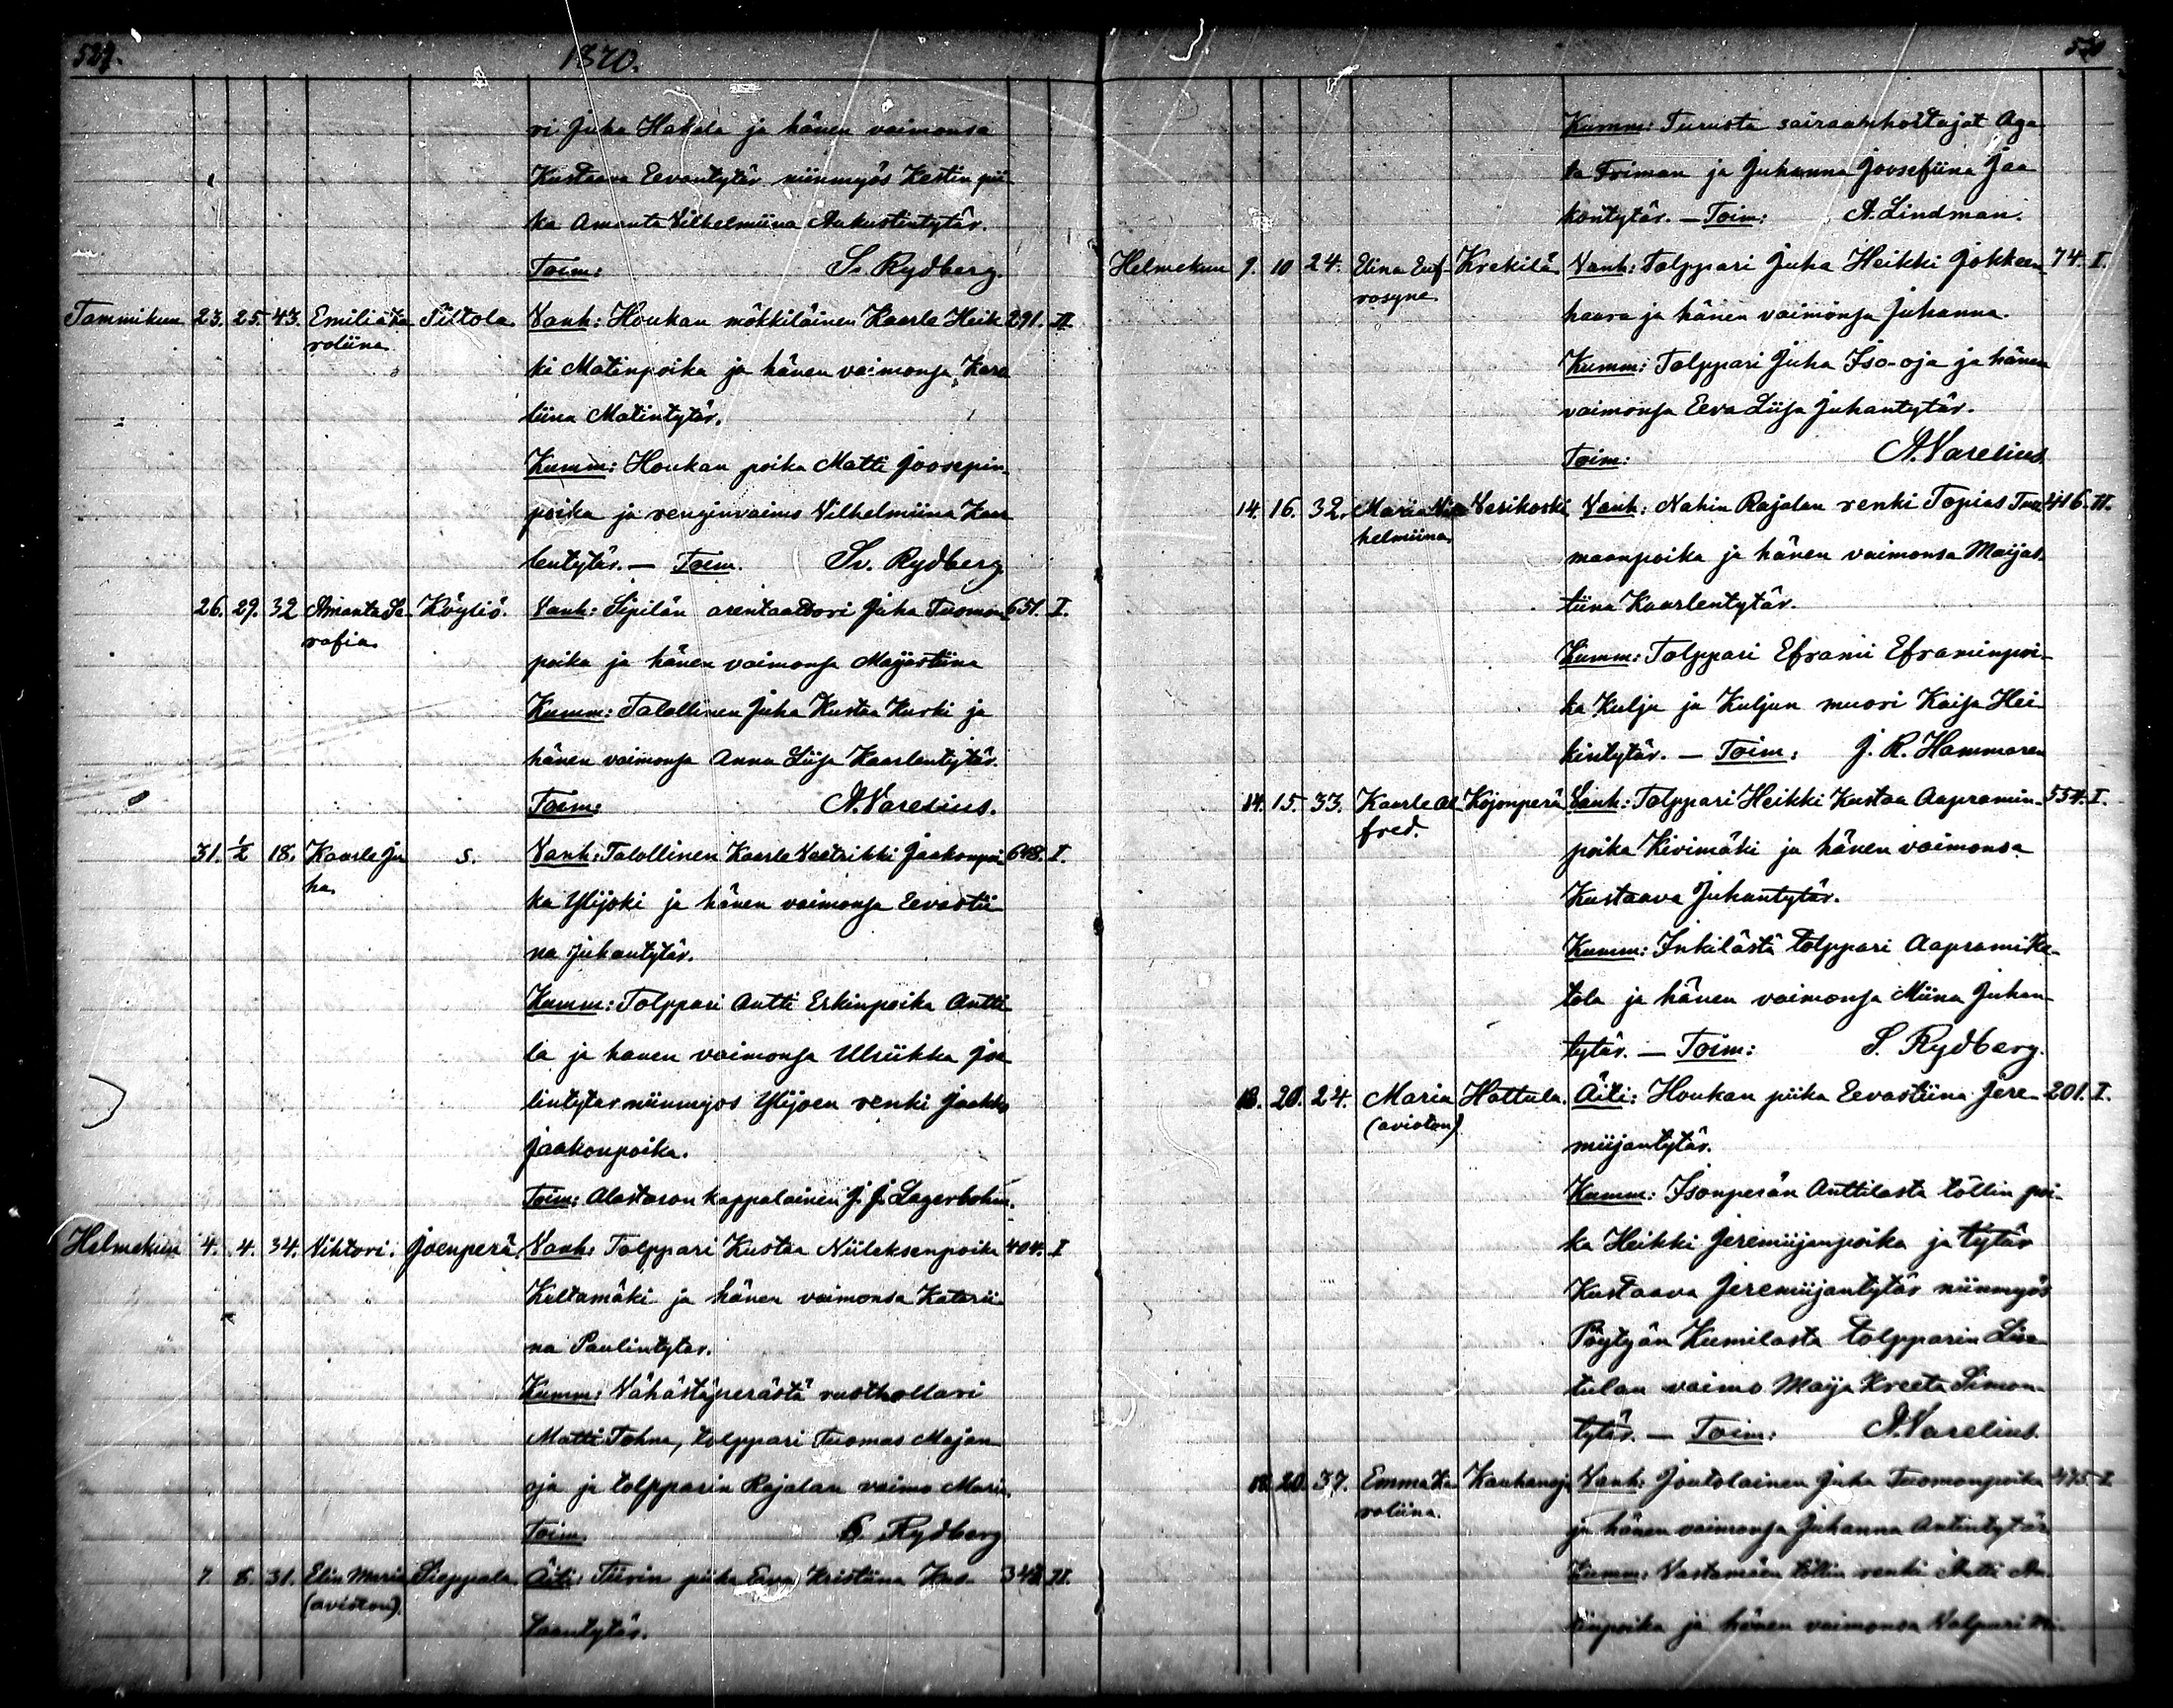 529. 1870.
ri Juha Hakala ja hänen vaimonsa
Kustaava Eevantytär niinmyös Kestin pii
ka Amanta Vilhelmiina Aukustintytär.
Toim: S. Rydberg.
Tammikuu 23. 25. 43. Emilia Ka Tiltola. Vanh: Houkan mökkiläinen Kaarle Heik 291. II
roliina ki Matinpoika ja hänen vaimonsa Karo
liina Matintytär.
Kumm: Houkan poika Matti Joosepin
poika ja renginvaimo Vilhelmiina Kaar
lentytär. — Toim. Sv. Rydberg.
26. 29. 32 Amanta Se Köyliö. Vanh: Sipilän arentaattori Juha Tuomon 651. I.
rafia. poika ja hänen vaimonsa Maijastiina
Kumm: Talollinen Juha Kustaa Kurki ja
hänen vaimonsa Anna Liisa Kaarlentytär.
Toim: A. Varelius.
31. 1/2 18. Kaarle Ju s. Vanh: Talollinen Kaarle Veetrikki Jaakonpoi 648. I.
ha. ka Ylijoki ja hänen vaimonsa Eevastii
na Juhantytär.
Kumm: Tolppari Antti Erkinpoika Antti
la ja hanen vaimonsa Ulriikka Joe
lintytar niinmyos Ylijoen renki Jaakko
Jaakonpoika.
Toim: Alastaron kappalainen J. J. Lagerbohm.
Helmekuu 4. 4. 34. Viktori. Joenperä. Vanh: Tolppari Kustaa Niileksenpoika 404. I
Keltamäki ja hänen vaimonsa Katarii
na Paulintytar.
Kumm: Vähästäperästä rusthollari
Matti Tohna, tolppari Tuomas Majan
oja ja tolpparin Rajalan vaimo Maria.
Toim. S. Rydberg
7. 8. 31. Elin Maria Sieppala. Äiti: Tiirin piika Eeva Kristiina Kus 348 II.
(avioton). taantytär.
530
Kumm: Turusta sairaanhoitajat Aga
ta Friman ja Juhanna Joosefiina Jaa
kontytär. — Toim: A. Lindman.
Helmekuu 9. 10 24. Elina Euf Krekilä. Vanh: Tolppari Juha Heikki Jokkeen 74. I.
rosyne. haara ja hänen vaimonsa Juhanna.
Kumm: Tolppari Juha Iso-oja ja hänen
vaimonsa Eeva Liisa Juhantytär.
Toim: A. Varelius.
14. 16. 32. Maria Vil Vesikoski Vanh: Nahin Rajalan renki Topias Tuo 416. II.
helmiina. maanpoika ja hänen vaimonsa Maijas
tiina Kaarlentytär.
Kumm: Tolppari Eframi Eframinpoi-
ka Kulju ja Kuljun muori Kaisa Hei
kintytär. — Toim: J. R. Hammaren
14. 15. 33. Kaarle Al Kojonperä Vanh: Tolppari Heikki Kustaa Aapramin 554. I.
fred. poika Kivimäki ja hänen vaimonsa
Kustaava Juhantytär.
Kumm: Inkilästä tolppari Aaprami Ke-
tola ja hänen vaimonsa Miina Juhan
tytär. — Toim: S. Rydberg.
18. 20. 24. Maria Hattula. Äiti: Houkan piika Eevastiina Jere- 201. I.
(avioton) miijantytär.
Kumm: Isonperän Anttilasta töllin poi-
ka Heikki Jeremiijanpoika ja tytär
Kustaava Jeremiijantytär niinmyös
Pöytyän Kumilasta tolpparin Lisa
tulan vaimo Maija Kreeta Simon
tytär. — Toim: A. Varelius.
18. 20. 37. Emma Ka Kauhanoja Vanh: Joutolainen Juha Tuomonpoika 475 I
roliina. ja hänen vaimonsa Juhanna Antintytär
Kumm: Vastamäen töllin renki Antti An
tinpoika ja hänen vaimonsa Valpuri